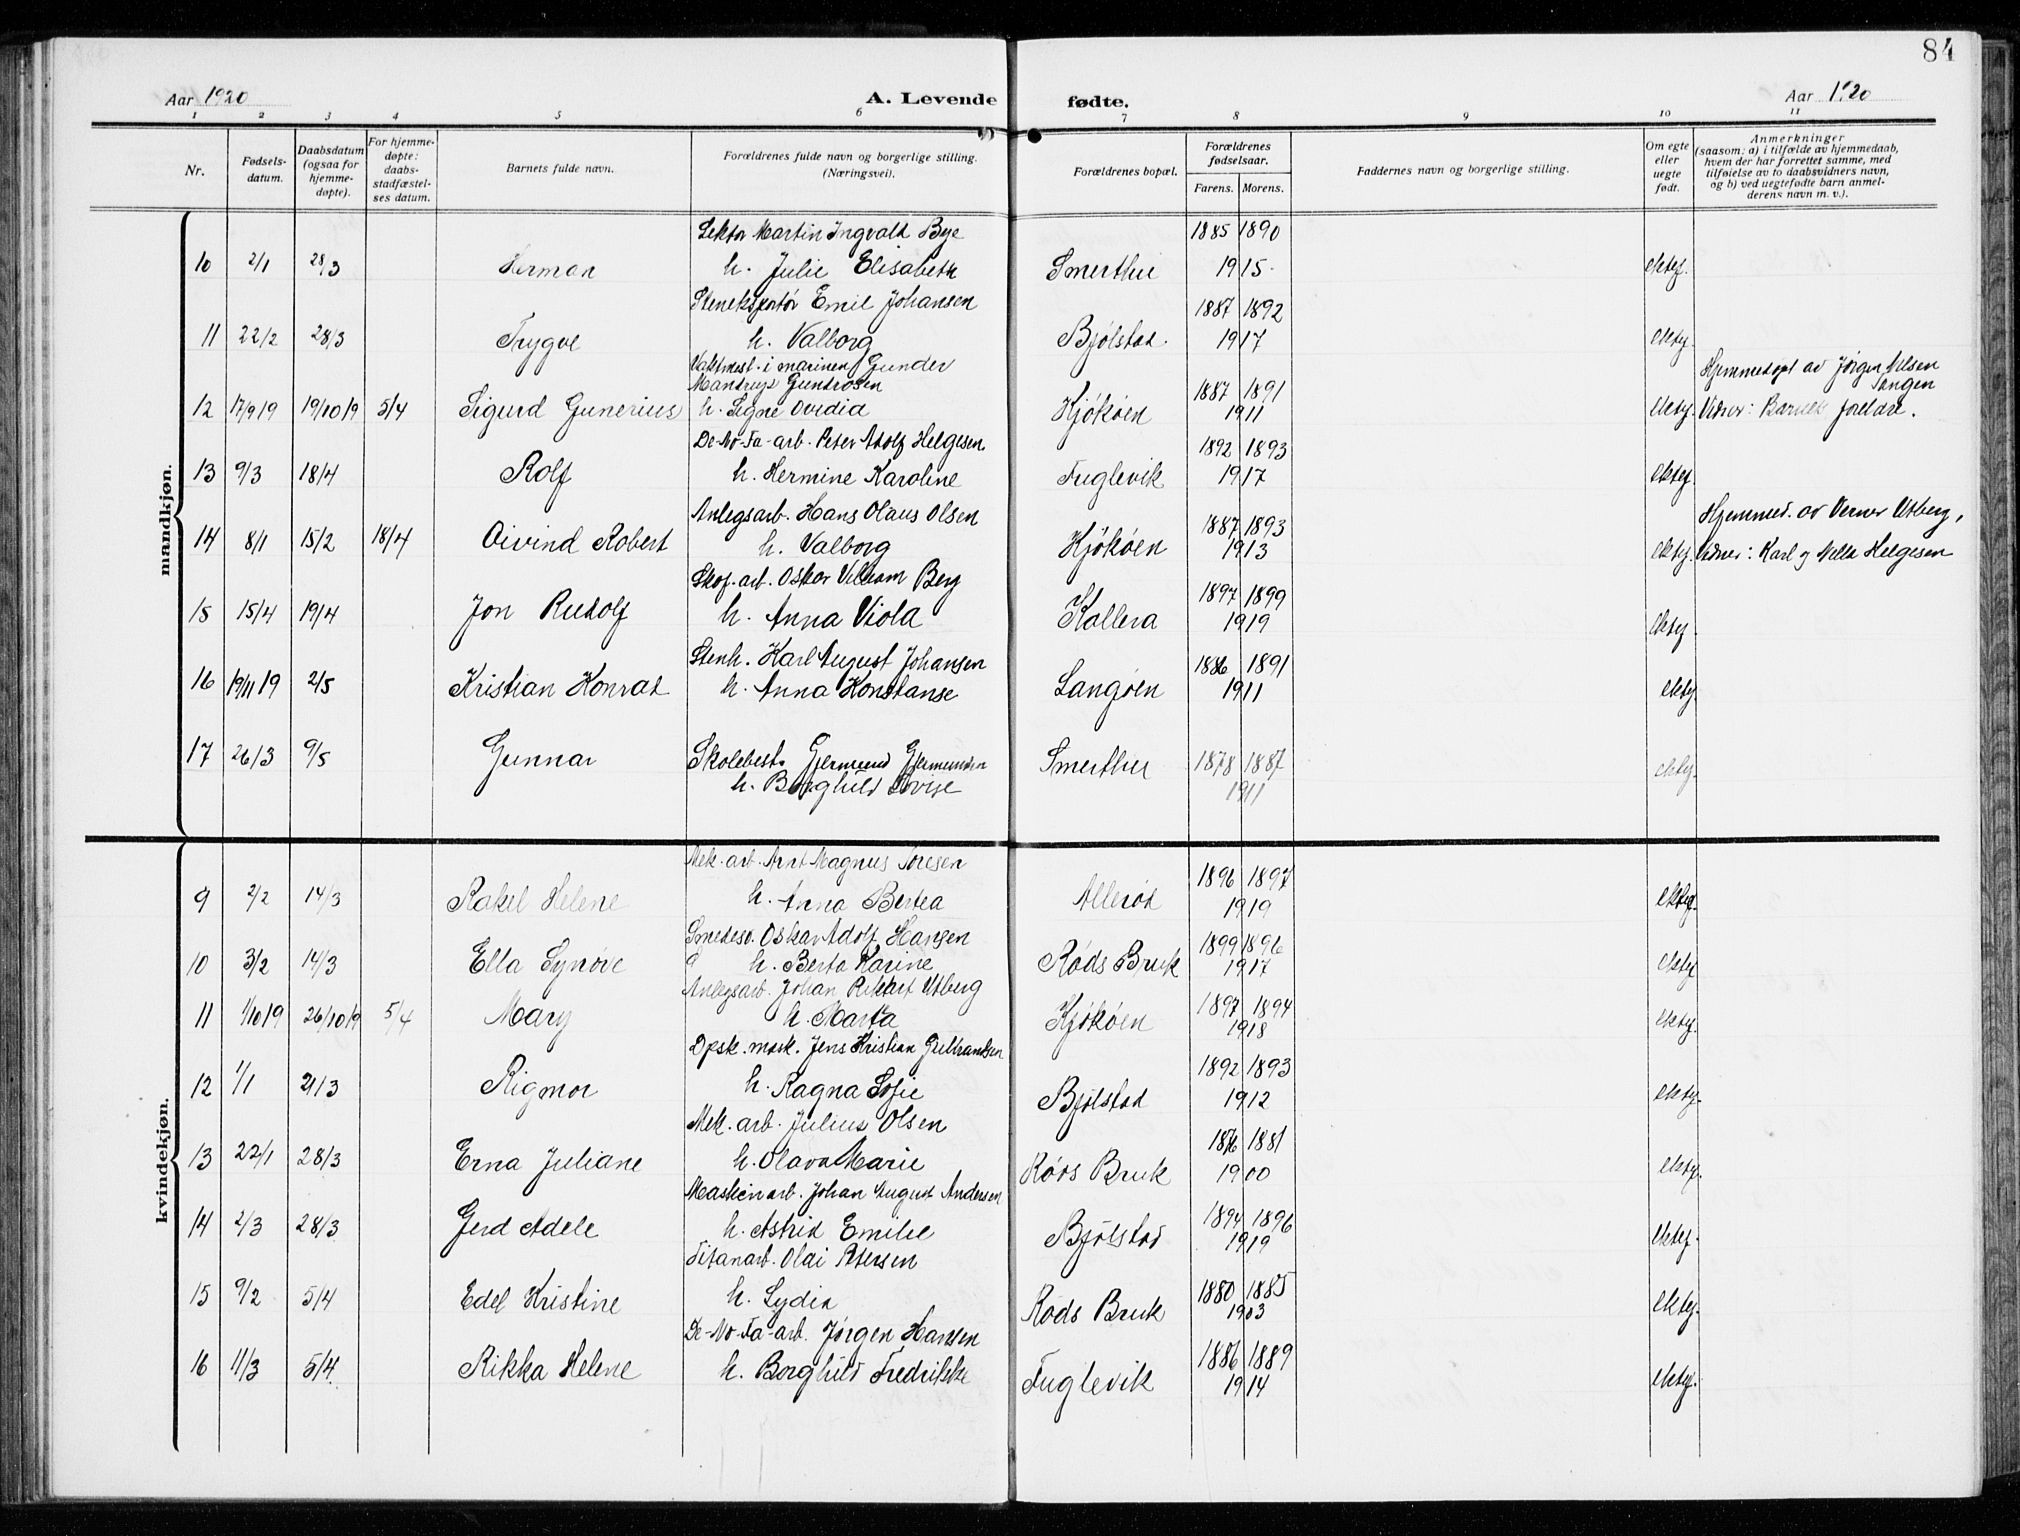 84
Aar 1920
A. Levende fødte.
Aar 1920
1 2 3 4 5 6 7 8 9 10 11
Nr.
Fødsels-
datum.
Daabsdatum
(ogsaa for
hjemme-
døpte).
For hjemme-
døpte:
daabs-
stadfæstel-
ses datum.
Barnets fulde navn.
Forældrenes fulde navn og borgerlige stilling.
(Næringsvei).
Forældrenes bopæl.
Forældrenes
fødselsaar.
Farens. Morens.
Faddernes navn og borgerlige stilling.
Om egte
eller
uegte
født.
Anmerkninger
(saasom: a) i tilfælde av hjemmedaab,
hvem der har forrettet samme, med
tilføielse av to daabsvidners navn,
og b) ved uegtefødte barn anmel-
derens navn m. v.).
mandkjøn.
Lektor Martin Ingvald Bye 1885 1890
10 2/1 28/3 Herman h. Julie Elisabeth Smerthu 1915 ektef.
Steneksportør Emil Johansen 1887 1892
11 22/2 28/3 Trygve h. Valborg Bjølstad 1917 ektef.
Vaktmest. i marinen Gunder
Mandrup Gundrosen 1887 1891 Hjemmedøpt av Jørgen Nilsen
Tangen
12 17/9 19 19/10 19 5/4 Sigurd Gunerius h. Signe Ovidia Kjøkøen 1911 ektef. Vidner: Barnets foreldre.
De-No-Fa-arb. Peter Adolf Helgesen 1892 1893
13 9/3 18/4 Rolf h. Hermine Karoline Fuglevik 1917 ektef.
Anlegsarb. Hans Olaus Olsen 1887 1893 Hjemmed. av Verner Utberg,
14 8/1 15/2 18/4 Oivind Robert h. Valborg Kjøkøen 1913 ektef. Vidner: Karl og Nella Helgesen
Skof. arb. Oskar Vilham Berg 1897 1899
15 15/4 19/4 Jon Rudolf h. Anna Viola Kallera 1919 ektef.
Stenh. Karl August Johansen 1886 1891
16 19/11 19 2/5 Kristian Konrad h. Anna Konstanse Langøen 1911 ektef.
17 26/3 9/5 Gunnar Skolebest. Gjermund Gjermundsen Smerthu 1878 1887 ektef.
h. Borghild Lovise 1911
kvindekjøn.
Mek. arb. Arnt Magnus Toresen 1896 1897
9 2/2 14/3 Rakel Helene h. Anna Bertea Allerød 1919 ektef.
Smedesv. Oskar Adolf Hansen 1899 1896
10 3/2 14/3 Ella Synøve h. Berta Karine Røds Bruk 1917 ektef.
Anlegsarb. Johan Rikart Utberg 1897 1894
11 1/10 19 26/10 19 5/4 Mary h. Marta Kjøkøen 1918 ektef.
Dpsk. mask. Jens Kristian Gulbrandsen 1892 1893
12 1/1 21/3 Rigmor h. Ragna Sofie Bjølstad 1912 ektef.
Mek. arb. Julius Olsen 1876 1881
13 22/1 28/3 Erna Juliane h. Olava Marie Røds Bruk 1900 ektef.
Maskinarb. Johan August Andersen 1894 1896
14 2/3 28/3 Gerd Adele h. Astrid Emilie Bjølstad 1919 ektef.
Titanarb. Olai Petersen 1880 1885
15 9/2 5/4 Edel Kristine h. Lydia Røds Bruk 1903 ektef.
De-No-Fa-arb. Jørgen Hansen 1886 1889
16 11/3 5/4 Rikka Helene h. Borghild Fredrikke Fuglevik 1914 ektef.